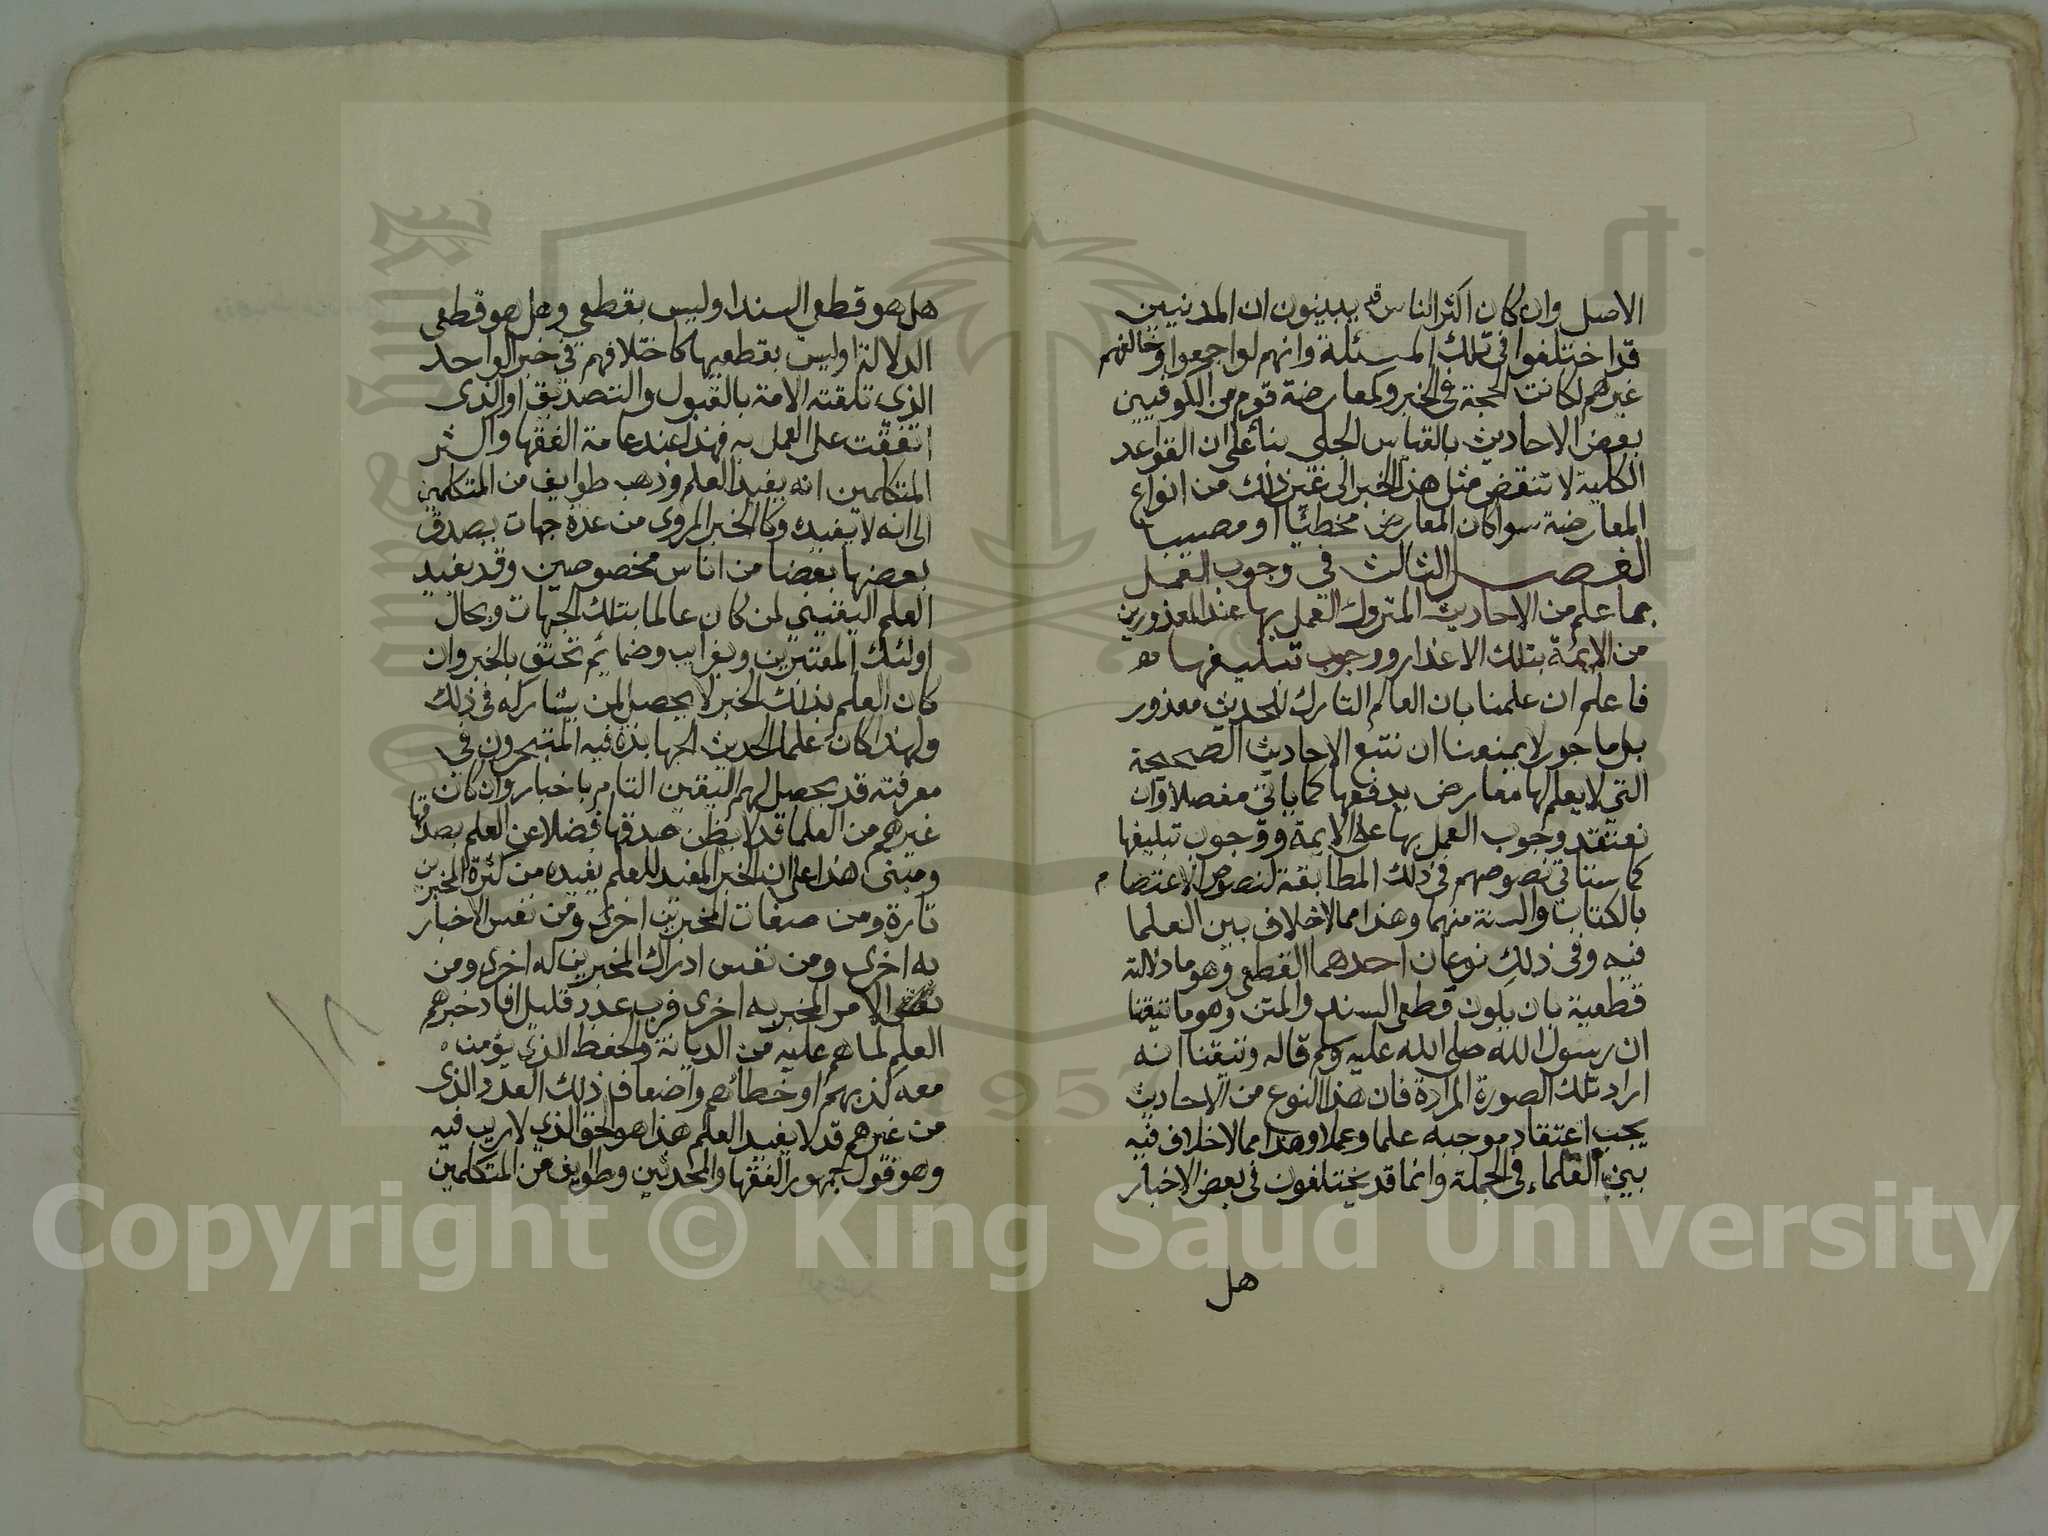 الاصل وان كان اكثر الناس قد يبينون ان المدنيين
قد اختلفوا في تلك المسئلة وانهم لو اجمعوا وخالفهم
غيرهم لكانت الحجة في الخبر وكمعارضة قوم من الكوفيين
بعض الاحاديث بالقياس الجلي بناء على ان القواعد
الكلية لا تنقض مثل هذا الخبر الى غير ذلك من انواع
المعارضة سوا كان المعارض مخطئا او مصيبا
الفصل الثالث في وجوب العمل
بما علم من الاحاديث المتروك العمل بها عند المعذورين
من الايمة بتلك الاعذار ووجوب تبليغها
فاعلم ان علمنا بان العالم التارك للحديث معذور
بل ماجور لا يمنعنا ان نتبع الاحاديث الصحيحة
التي لا يعلم لها معارض يدفعها كما ياتي مفصلا وان
نعتقد وجوب العمل بها على الايمة ووجوب تبليغها
كما ستاتي نصوصهم في ذلك المطابقة لنصوص الاعتصام
بالكتاب والسنة منهما وهذا مما لا خلاف بين العلما
فيه وفي ذلك نوعان احدهما القطعي وهو ما دلالته
قطعية بان يكون قطعي السند والمتن وهو ما تيقنا
ان رسول الله صلى الله عليه وسلم قاله وتيقنا انه
اراد تلك الصورة المرادة فان هذا النوع من الاحاديث
يجب اعتقاد موجبه علما وعملا وهذا مما لا خلاف فيه
بين العلماء في الجملة وانما قد يختلفون في بعض الاخبار
هل
هل هو قطعي السند او ليس بقطعي وهل هو قطعي
الدلالة او ليس بقطعيها كاختلافهم في خبر الواحد
الذي تلقته الامة بالقبول والتصديق او الذي
اتفقت على العمل به فهذا عند عامة الفقها واكثر
المتكلمين انه يفيد العلم وذهب طوايف من المتكلمين
الى انه لا يفيده وكالخبر المروي من عدة جهات يصدق
بعضها بعضا من اناس مخصوصين وقد يفيد
العلم اليقيني لمن كان عالما بتلك الجهات وبحال
اولئك المقترين وبقراين وضمائم تحتف بالخبر وان
كان العلم بذلك الخبر لا يحصل لمن يشاركه في ذلك
ولهذا كان علما الحديث الجهابذة فيه المتبحرون في
معرفته قد يحصل لهم اليقين التام باخبار وان كان
غيرهم من العلما قد لا يظن صدقها فضلا عن العلم بصدقها
ومبنى هذا على ان الخبر المفيد للعلم يفيده من كثرة المخبرين
تارة ومن صفات المخبرين اخرى ومن نفس الاخبار
به اخرى ومن نفس ادراك المخبرين له اخرى ومن
نفس الامر المخبر به اخرى فرب عدد قليل افاد خبرهم
العلم لما هم عليه من الديانة والحفظ الذي يؤمن
معه كذبهم او خطائهم واضعاف ذلك العدد الذي
من غيرهم قد لا يفيد العلم هذا هو الحق الذي لا ريب فيه
وهو قول جمهور الفقها والمحدثين وطوايف من المتكلمين
Copyright © King Saud University
1957